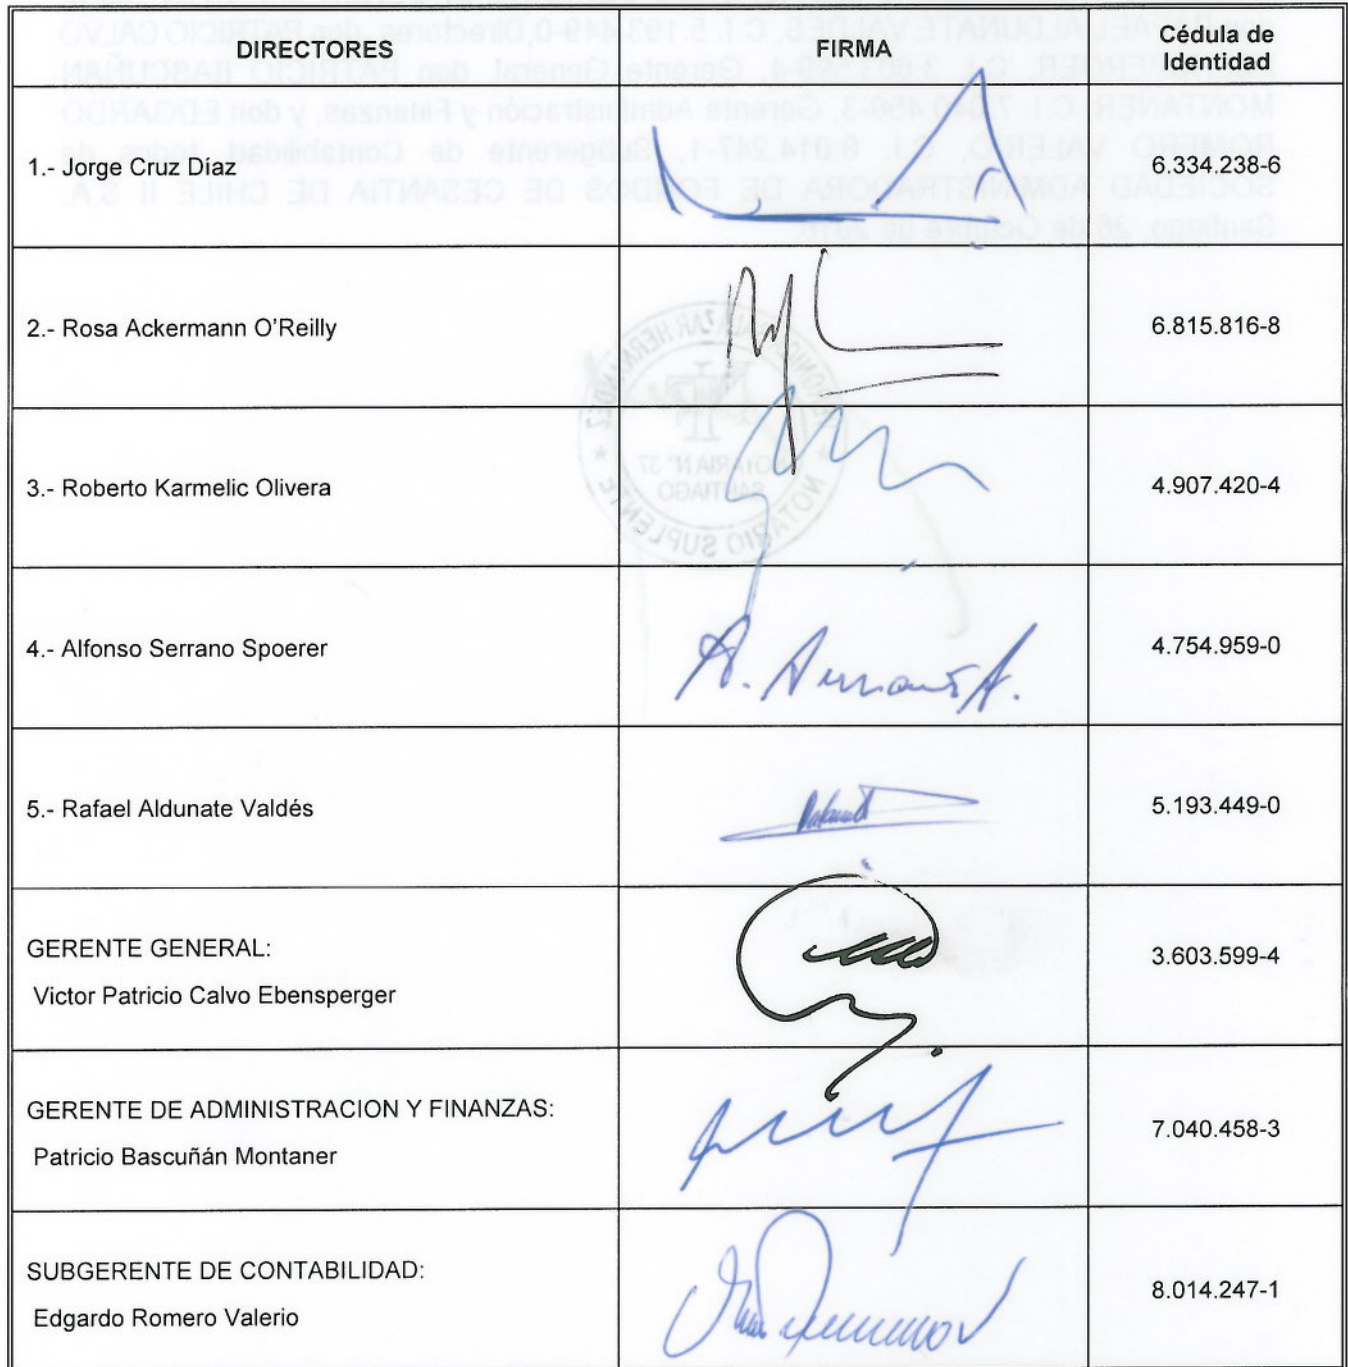 DIRECTORES FIRMA Cédula de Identidad
1.- Jorge Cruz Díaz 6.334.238-6
2.- Rosa Ackermann O'Reilly 6.815.816-8
3.- Roberto Karmelic Olivera 4.907.420-4
4.- Alfonso Serrano Spoerer 4.754.959-0
5.- Rafael Aldunate Valdés 5.193.449-0
GERENTE GENERAL:
Victor Patricio Calvo Ebensperger 3.603.599-4
GERENTE DE ADMINISTRACION Y FINANZAS:
Patricio Bascuñán Montaner 7.040.458-3
SUBGERENTE DE CONTABILIDAD:
Edgardo Romero Valerio 8.014.247-1